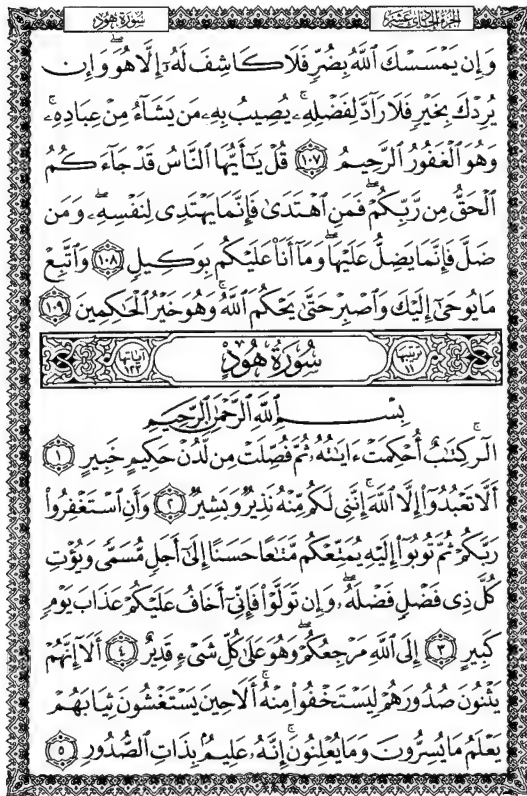 سُورَةُ هُودٍ
الجُزْءُ الْحَادِي عَشَرَ
وَإِن يَمْسَسْكَ ٱللَّهُ بِضُرٍّ فَلَا كَاشِفَ لَهُۥٓ إِلَّا هُوَۖ وَإِن
يُرِدْكَ بِخَيْرٍ فَلَا رَآدَّ لِفَضْلِهِۦۚ يُصِيبُ بِهِۦ مَن يَشَآءُ مِنْ عِبَادِهِۦۚ
وَهُوَ ٱلْغَفُورُ ٱلرَّحِيمُ ١٠٧ قُلْ يَٰٓأَيُّهَا ٱلنَّاسُ قَدْ جَآءَكُمُ
ٱلْحَقُّ مِن رَّبِّكُمْۖ فَمَنِ ٱهْتَدَىٰ فَإِنَّمَا يَهْتَدِى لِنَفْسِهِۦۖ وَمَن
ضَلَّ فَإِنَّمَا يَضِلُّ عَلَيْهَاۖ وَمَآ أَنَا۠ عَلَيْكُم بِوَكِيلٍ ١٠٨ وَٱتَّبِعْ
مَا يُوحَىٰٓ إِلَيْكَ وَٱصْبِرْ حَتَّىٰ يَحْكُمَ ٱللَّهُۚ وَهُوَ خَيْرُ ٱلْحَٰكِمِينَ ١٠٩
ترتيبها ١١ سُورَةُ هُودٍ آياتها ١٢٣
بِسْمِ ٱللَّهِ ٱلرَّحْمَٰنِ ٱلرَّحِيمِ
الٓرۚ كِتَٰبٌ أُحْكِمَتْ ءَايَٰتُهُۥ ثُمَّ فُصِّلَتْ مِن لَّدُنْ حَكِيمٍ خَبِيرٍ ١
أَلَّا تَعْبُدُوٓا۟ إِلَّا ٱللَّهَۚ إِنَّنِى لَكُم مِّنْهُ نَذِيرٌ وَبَشِيرٌ ٢ وَأَنِ ٱسْتَغْفِرُوا۟
رَبَّكُمْ ثُمَّ تُوبُوٓا۟ إِلَيْهِ يُمَتِّعْكُم مَّتَٰعًا حَسَنًا إِلَىٰٓ أَجَلٍ مُّسَمًّى وَيُؤْتِ
كُلَّ ذِى فَضْلٍ فَضْلَهُۥۖ وَإِن تَوَلَّوْا۟ فَإِنِّىٓ أَخَافُ عَلَيْكُمْ عَذَابَ يَوْمٍ
كَبِيرٍ ٣ إِلَى ٱللَّهِ مَرْجِعُكُمْۖ وَهُوَ عَلَىٰ كُلِّ شَىْءٍ قَدِيرٌ ٤ أَلَآ إِنَّهُمْ
يَثْنُونَ صُدُورَهُمْ لِيَسْتَخْفُوا۟ مِنْهُۚ أَلَا حِينَ يَسْتَغْشُونَ ثِيَابَهُمْ
يَعْلَمُ مَا يُسِرُّونَ وَمَا يُعْلِنُونَۚ إِنَّهُۥ عَلِيمٌۢ بِذَاتِ ٱلصُّدُورِ ٥